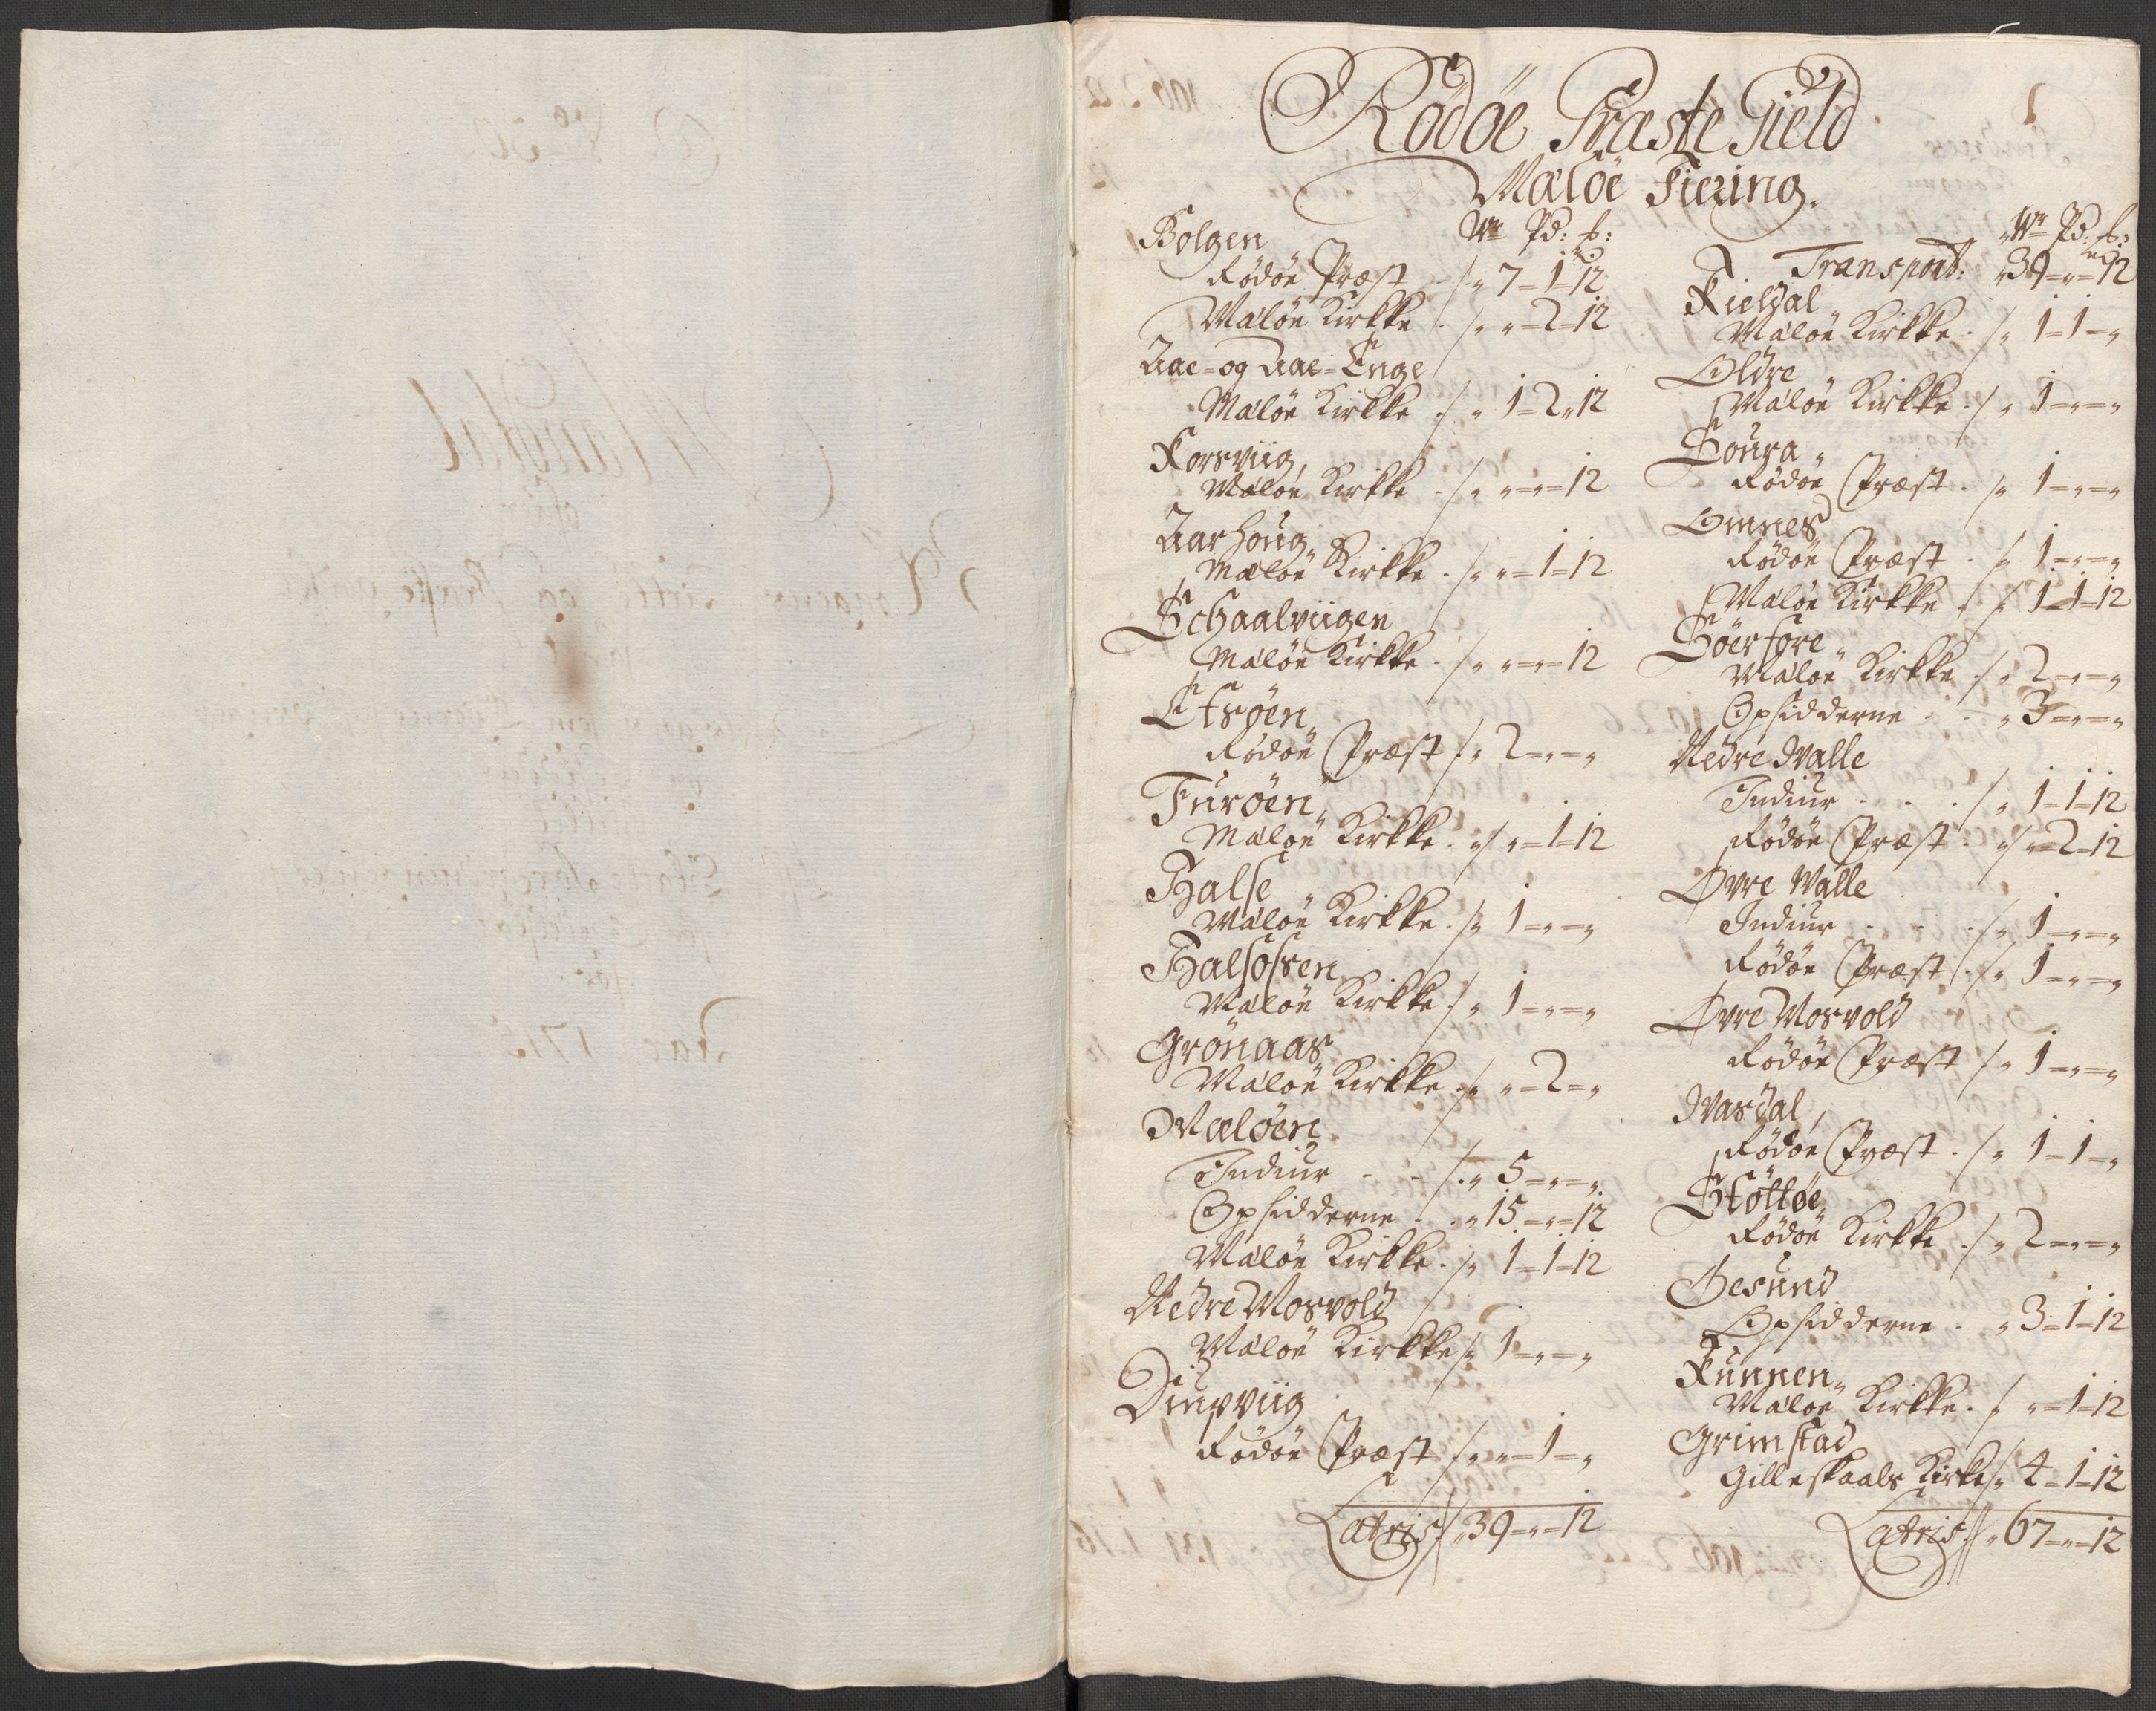 1
Rödöe Præste Gield
Maløe Fiering.
Wr Pd: f:
Bolgen
Rödöe Præst ./. " 7 = 1 = 12
Maløe Kirkke ./. " " = 2 = 12
Aae = og Aae = Enge
Maløe Kirkke ./. " 1 = 2 " 12
Korsviig,
Maløe Kirkke ./. " " = " = 12
Aarhoug
Maløe Kirkke ./. " " = 1 = 12
Schaalviigen
Maløe Kirkke ./. " " = " = 12
Etsöen
Rödöe Præst ./. " 2 = " = "
Furöen
Maløe Kirkke ./. " " = 1 = 12
Halse
Maløe Kirkke ./. " 1 = " = "
Halsosen
Maløe Kirkke ./. " 1 = " = "
Grönaas
Maløe Kirkke ./. " " = 2 = "
Maløen
Indiur - - ./. " 5 = " = "
Opsidderne . . " 15 = " = 12
Maløe Kirkke ./. " 1 = 1 = 12
Nedre Mosvold
Maløe Kirkke ./. " 1 = " = "
Diupviig
Rödöe Præst ./. " " = 1 = "
Latris ./. " 39 = " = 12
Wr Pd: f:
Transport: " 39 = " = 12
Kieldal
Maløe Kirkke ./. " 1 = 1 = "
Oldre
Maløe Kirkke ./. " 1 = " = "
Soura
Rödöe Præst ./. " 1 = " = "
Omnes
Rödöe Præst ./. " 1 = " = "
Maløe Kirkke ./. " 1 = 1 = 12
Söerfore
Maløe Kirkke ./. " 2 = " = "
Opsidderne . . " 3 = " = "
Nedre Valle
Indiur . . ./. " 1 = 1 = 12
Rödöe Præst ./. " " = 2 = 12
Øvre Walle
Indiur . . ./. " 1 = " = "
Rödöe Præst ./. " 1 = " = "
Øvre Mosvold
Rödöe Præst ./. " 1 = " = "
Vasdal,
Rödöe Præst ./. " 1 = 1 = "
Støttøe
Rödöe Kirkke ./. " 2 = " = "
Gesund
Opsidderne . " 3 = 1 = 12
Kunnen
Maløe Kirkke ./. " " = 1 = 12
Grimstad
Gilleskaals Kirke ./. " 4 = 1 = 12
Latris ./. " 67 = " = 12